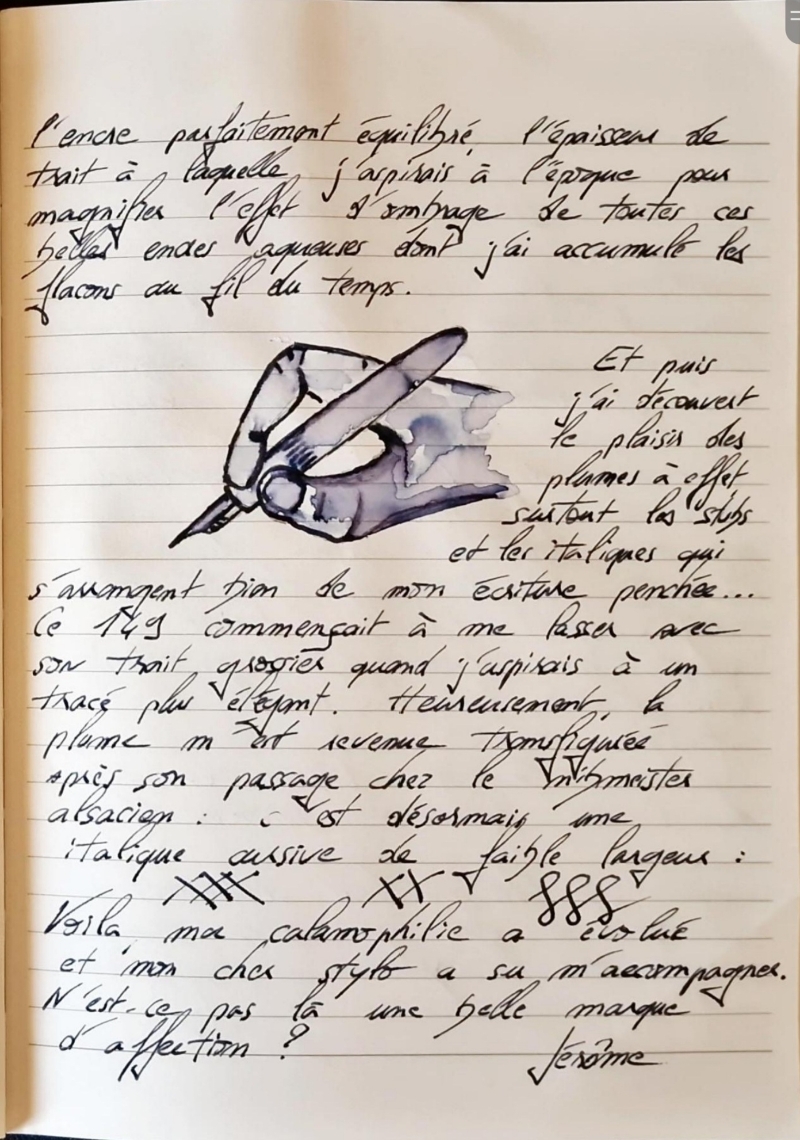 l'encre parfaitement équilibré, l'épaisseur de
trait à laquelle j'aspirais à l'époque pour
magnifier l'effet d'ombrage de toutes ces
belles encres aqueuses dont j'ai accumulé les
flacons au fil du temps.
Et puis
j'ai découvert
le plaisir des
plumes à effet,
surtout les stubs
et les italiques qui
s'arrangent bien de mon écriture penchée...
Ce 149 commençait à me lasser avec
son trait grossier quand j'aspirais à un
tracé plus élégant. Heureusement, la
plume m'est revenue transfigurée
après son passage chez le nibmeister
alsacien : c'est désormais une
italique cursive de faible largeur :
Voilà, ma calamophilie a évolué
et mon cher stylo a su m'accompagner.
N'est-ce pas là une belle marque
d'affection ?
Jérôme